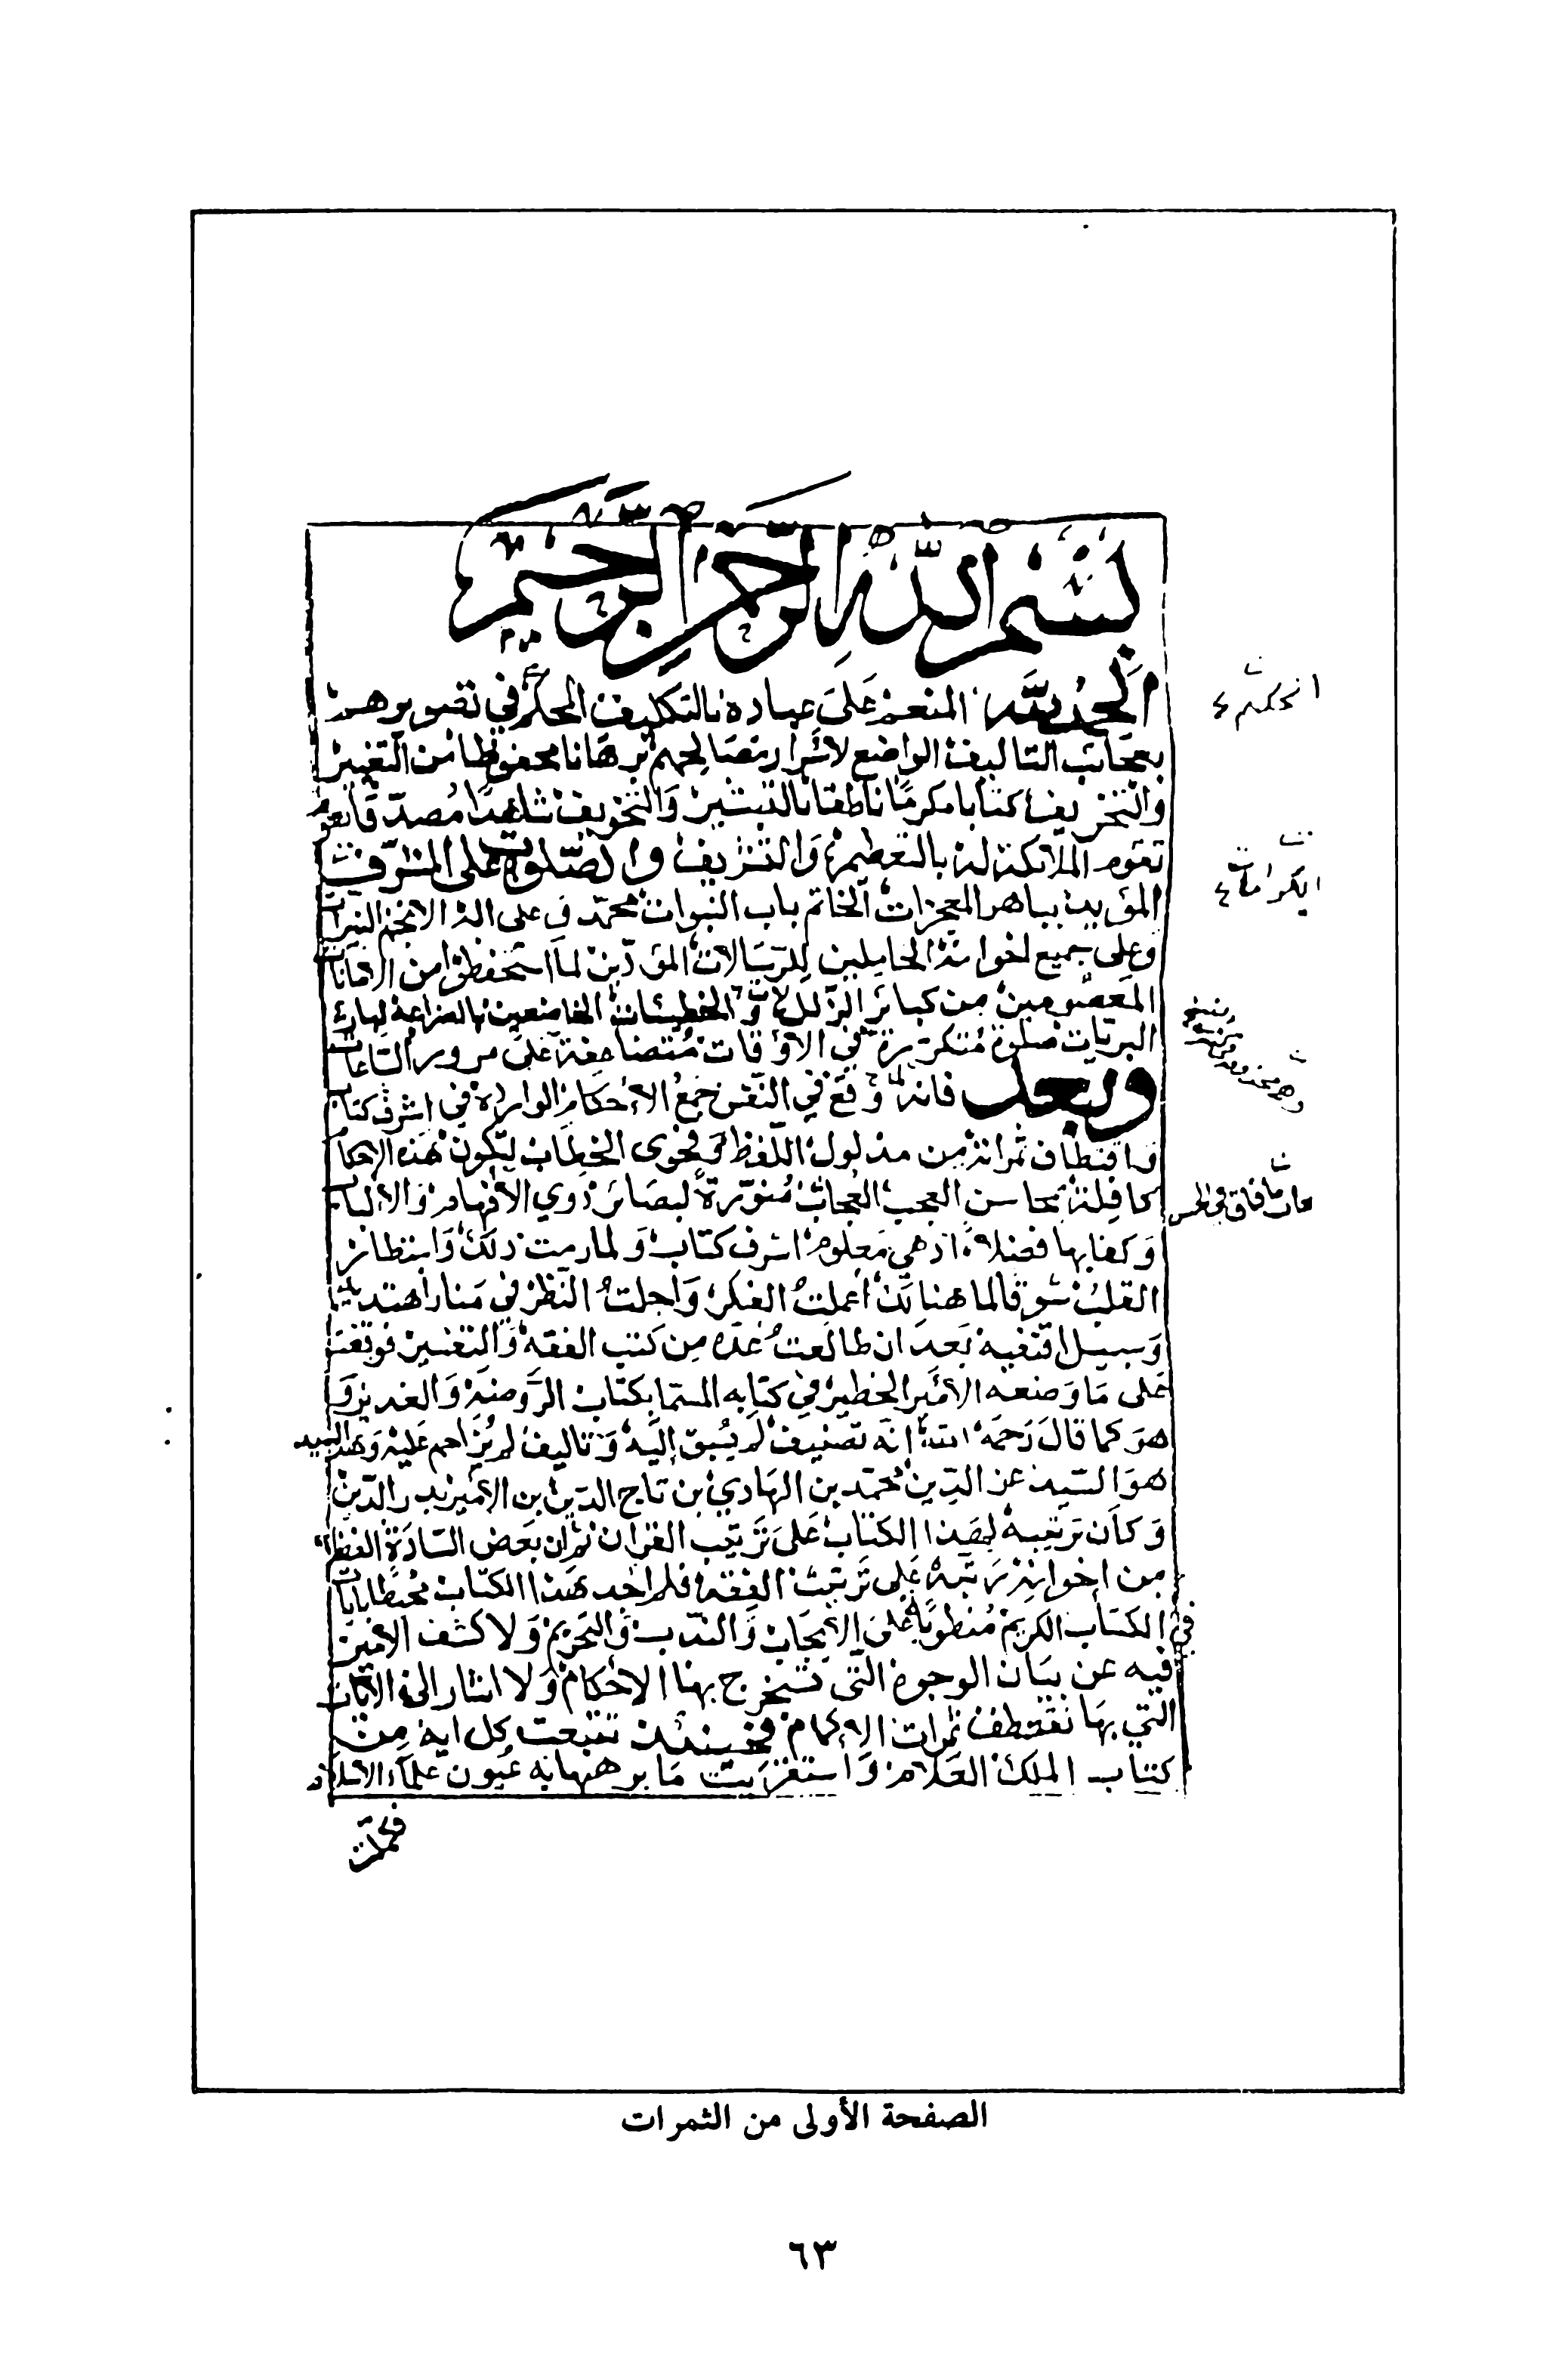 بسم الله الرحمن الرحيم
الحمد لله المنعم على عباده بالتكليف المحكم في تقويرهم
بعجائب التاليف الواضع لاسرار مصالحهم برهانا محفوظا من التغيير
والتحريف كتابا مكرما ناطقا بالتبشير والتخويف شاهدا مصدقا
تقوم الملائكة له بالتعظيم والتشريف والصلوة على المشرف
المؤيد بباهر المعجزات الخاتم باب النبوات محمد وعلى اله الانجم النيرات
وعلى جميع اخوانه الحاملين للرسالات المؤدين لما استحفظوا من الامانات
المعصومين من كبائر الزلات والخطيئات الخاضعين بالضراعة لبارئ
البريات صلوة متكررة في الاوقات متضاعفة على مرور الساعات
وبعد فانه لما وقع في النفس جمع الاحكام الواردة في اشرف كتاب
واقتطاف ثمراته من مدلول اللفظ وفحوى الخطاب لتكون هذه الاحكام
كافلة بمحاسن العجب العجاب منورة لبصائر ذوي الافهام والالباب
وكفا بها فضلا اذ هي معلوم اشرف كتاب ولما رمت ذلك واستطار
القلب شوقا لما هنالك اعملت الفكر واجلت النظر في منار اهتديه
وسبيل اقتفيه بعد ان طالعت عدة من كتب الفقه والتفسير فوقفت
على ما وضعه الأمير الخطير في كتابه المسما بكتاب الروضة والغدير و
هو كما قال رحمه الله انه تصنيف لم يسبق إليه وتاليف لم يزاحم عليه وهذا السيد
هو السيد عز الدين محمد بن الهادي بن تاج الدين بن الأمير بدر الدين
وكان ترتيبه لهذا الكتاب على ترتيب القران ثم ان بعض السادة الفضلاء
من اخوانه رتبه على ترتيب الفقه فلم اجد هذا الكتاب محيطا بايات
في الكتاب الكريم منطوية على الايجاب والندب والتحريم ولا كشف الامير
فيه عن بيان الوجوه التي تستخرج بها الاحكام ولا اشار الى الايات
التي بها تقتطف ثمرات الاكمام فحينئذ تتبعت كل اية من
كتاب الملك العلام واستقريت ما برهنها به عيون علماء الاسلام
الكرامات
الصفحة الأولى من الثمرات
٦٣